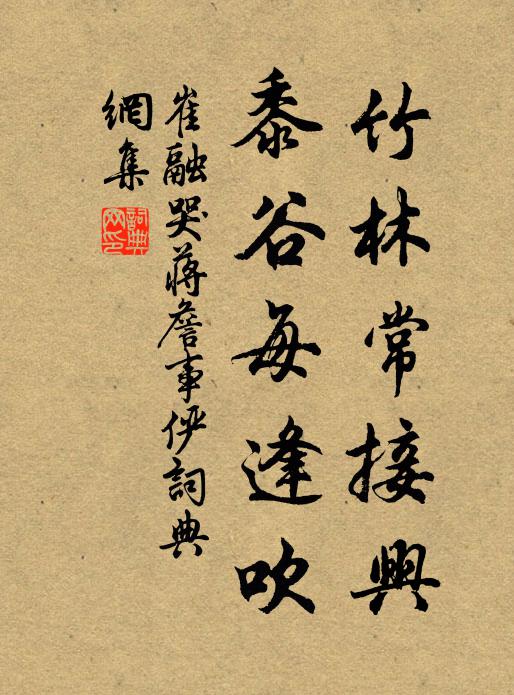 竹林常接興
黍谷每逢吹
崔融哭蔣詹事俨詞典
網集
詞典
网印